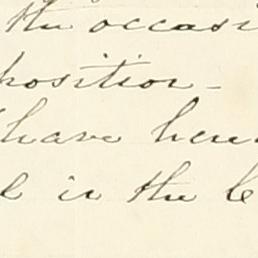 the occasi
position -
have here
l in the C